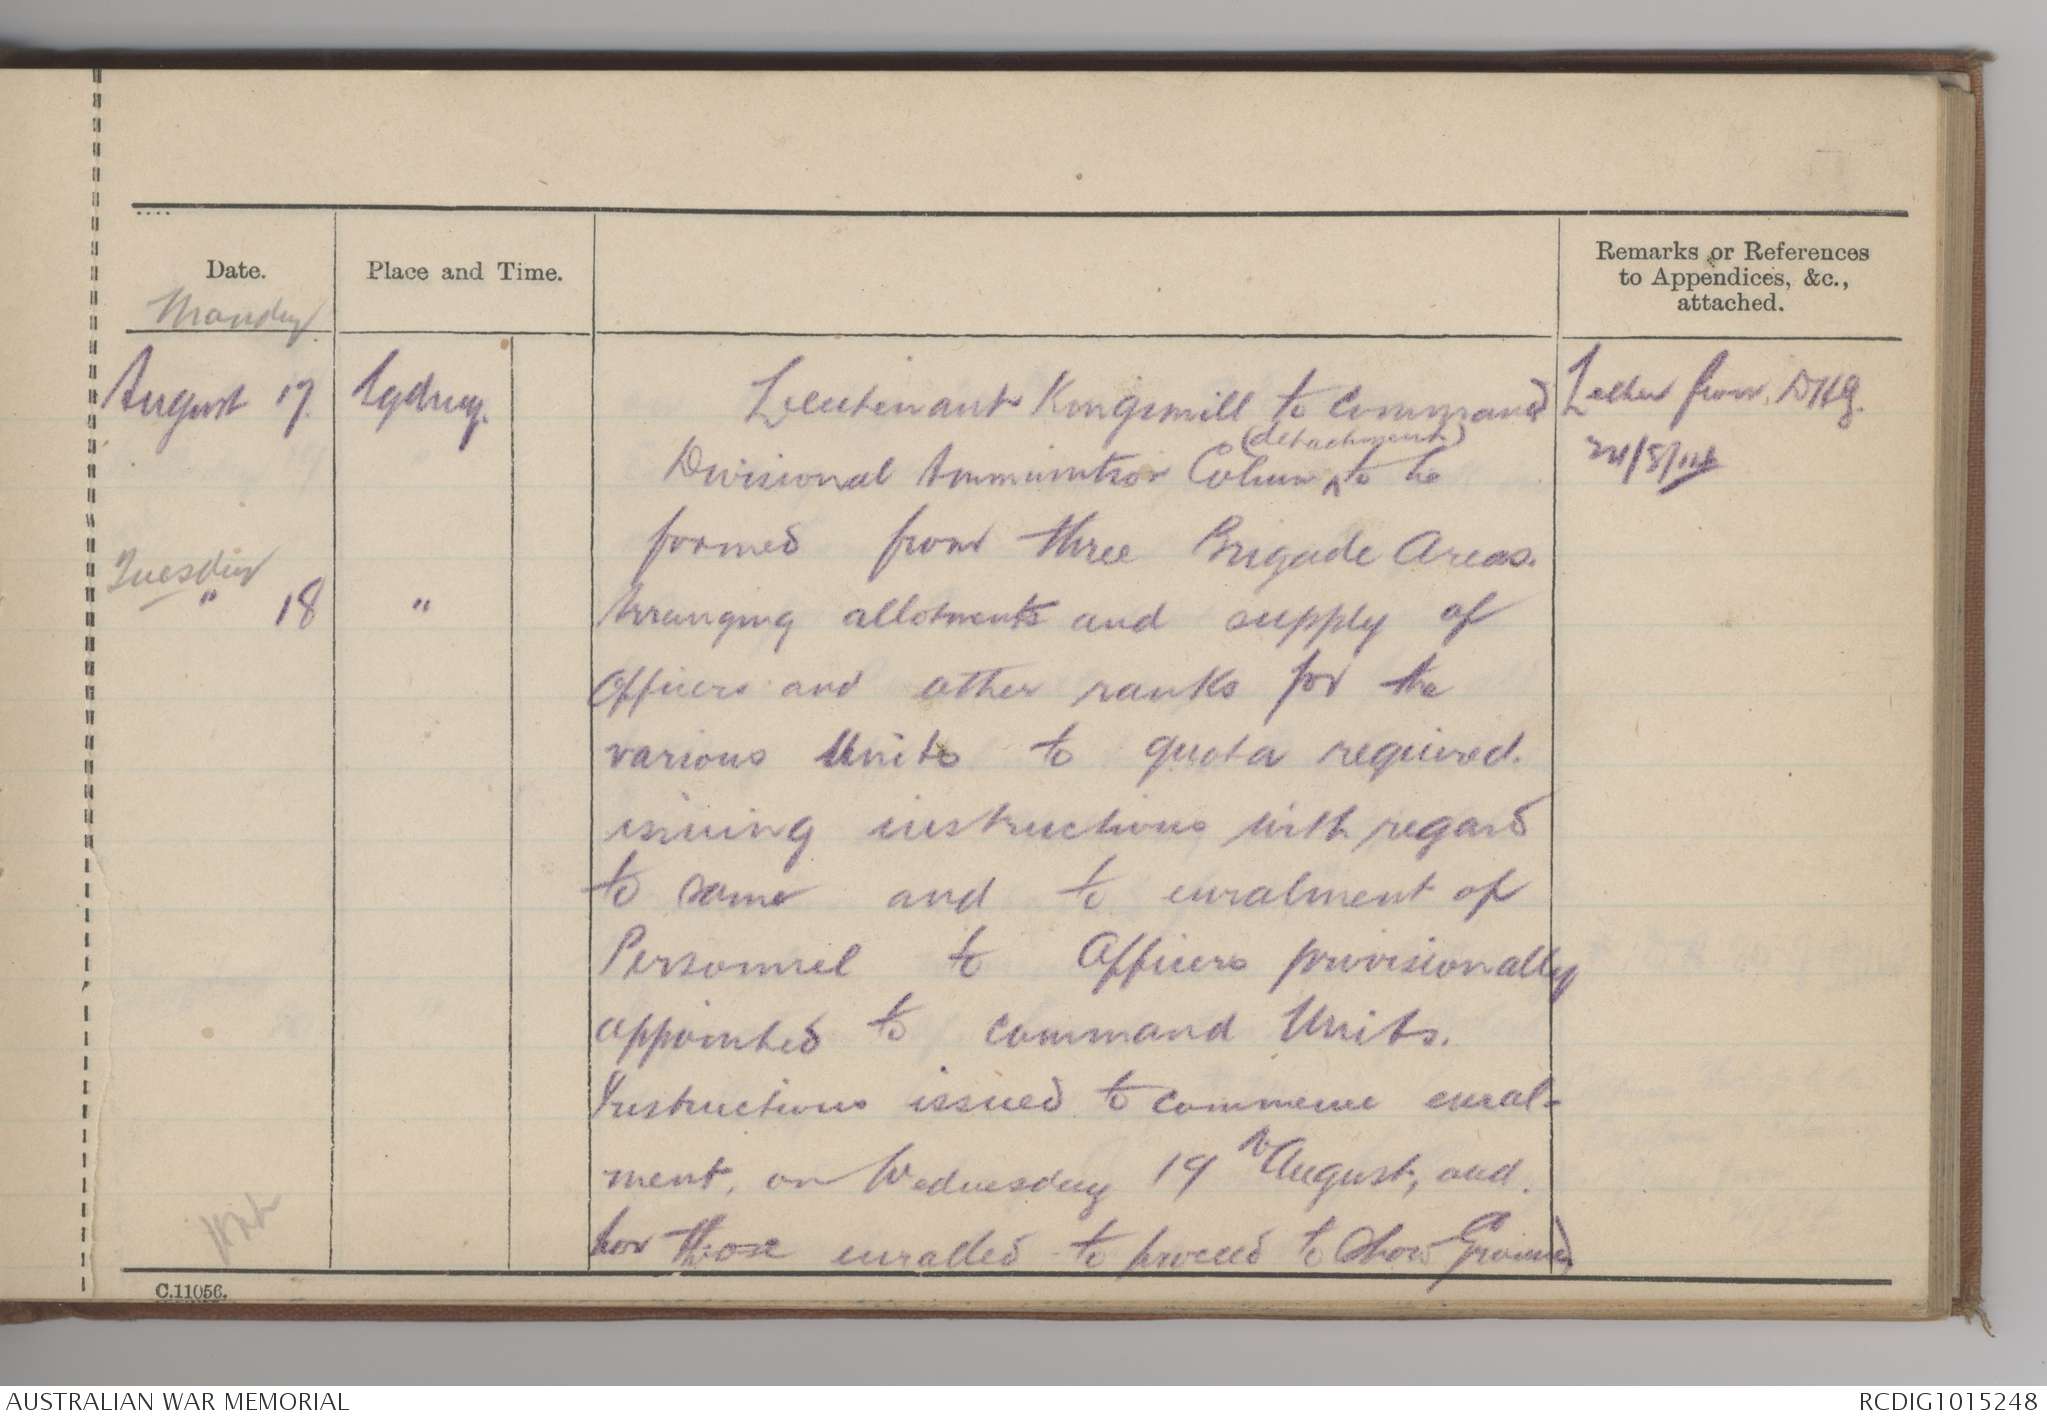 Date.
Place and Time.
Remarks or References
to Appendices, &c.,
attached.
Monday
August 17. Sydney. Lieutenant Kingsmill to command Letter from DHQ.
(detachment)
Divisional Ammunition Column ^ to be 24/8/14
formed from three Brigade Areas.
Tuesday
" 18 " Arranging allotments and supply of
Officers and other ranks for the
various Units to quota required.
issuing instructions with regard
to same and to enralment of
Personnel to Officers provisionally
appointed to command Units.
Instructions issued to commence enral-
ment, on Wednesday 19th August, and
for those enralled to proceed to Show Ground
C.11056.
AUSTRALIAN WAR MEMORIAL
RCDIG1015248